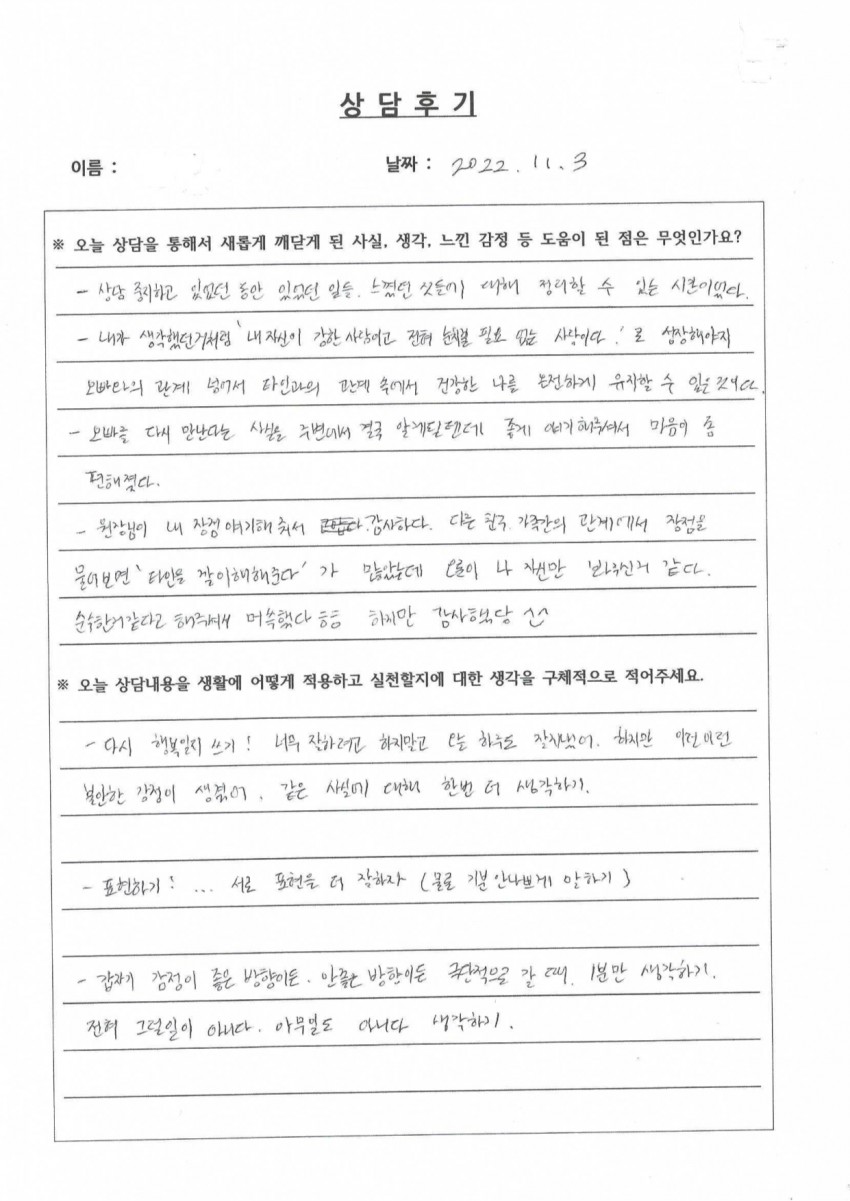 상 담 후 기
이름 :
날짜 : 2022. 11. 3
※ 오늘 상담을 통해서 새롭게 깨닫게 된 사실, 생각, 느낀 감정 등 도움이 된 점은 무엇인가요?
- 상담 중지하고 있었던 동안 있었던 일들, 느꼈던 것들에 대해 정리할 수 있는 시간이었다.
- 내가 생각했던거처럼 '내 자신이 강한 사람이고 전혀 눈치볼 필요 없는 사람이다.' 로 성장해야지
오빠와의 관계 넘어서 타인과의 관계 속에서 건강한 나를 온전하게 유지할 수 있을 것이다.
- 오빠를 다시 만난다는 사실을 주변에서 결국 알게될텐데 좋게 얘기해주셔서 마음이 좀
편해졌다.
- 원장님이 내 장점 얘기해 줘서 감사하다. 다른 친구, 가족간의 관계에서 장점을
물어보면 '타인을 잘 이해해준다' 가 많았는데 오롯이 나 자신만 봐주신거 같다.
순수한거같다고 해주셔서 머쓱했다 흠흠 하지만 감사했당 ^^
※ 오늘 상담내용을 생활에 어떻게 적용하고 실천할지에 대한 생각을 구체적으로 적어주세요.
- 다시 행복일지 쓰기! 너무 잘하려고 하지말고 오늘 하루도 잘지냈어. 하지만 이런이런
불안한 감정이 생겼어, 같은 사실에 대해 한번 더 생각하기.
- 표현하기! ... 서로 표현을 더 잘하자 (물론 기분 안나쁘게 말하기)
- 갑자기 감정이 좋은 방향이든, 안좋은 방향이든 극단적으로 갈 때, 1분만 생각하기.
전혀 그럴일이 아니다. 아무일도 아니다 생각하기.